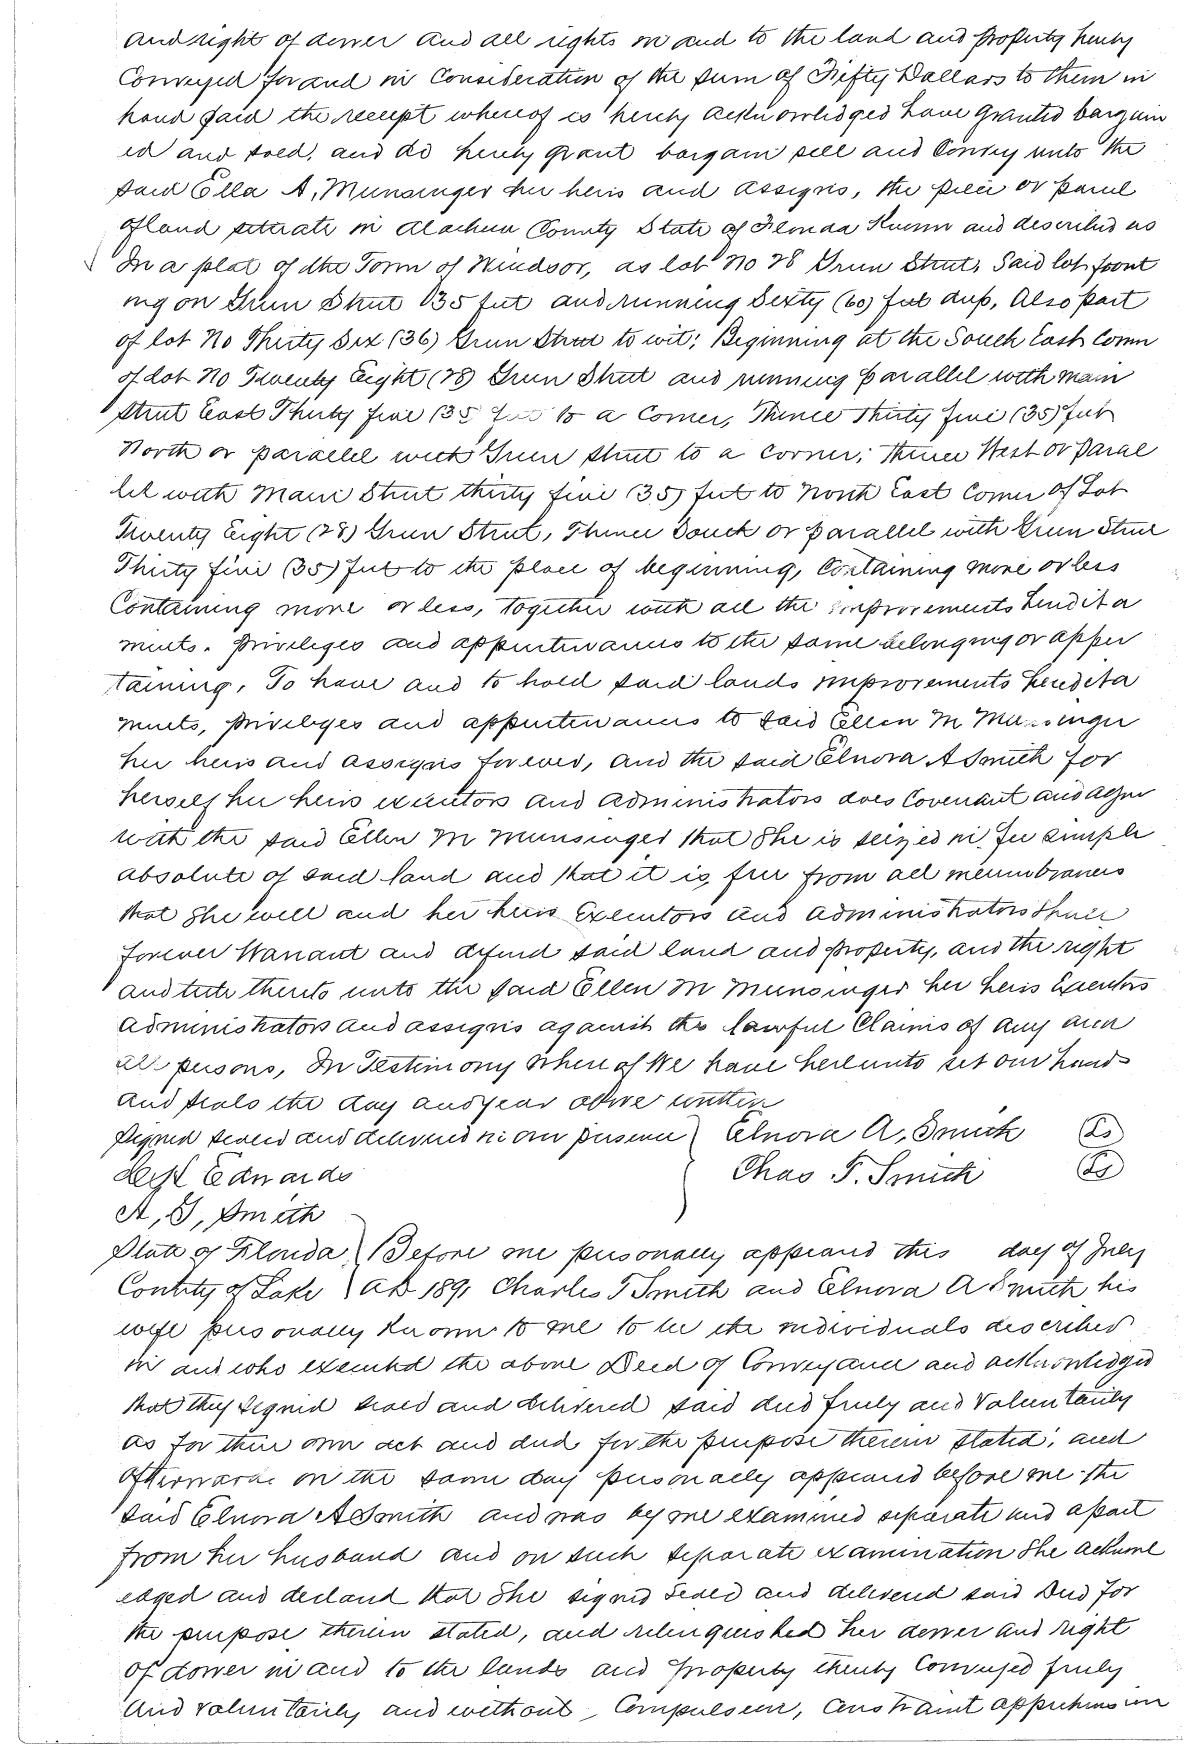 and right of dower and all rights in and to the land and property hereby
Conveyed for and in Consideration of the sum of Fifty Dollars to them in
hand paid the receipt whereof is hereby acknowledged have granted bargain
ed and sold, and do hereby grant bargain sell and Convey unto the
said Ella A, Munsinger her heirs and assigns, the piece or parcel
of land situate in Alachua County State of Florida Known and described as
In a plat of the Town of Windsor, as lot No 28 Green Street, Said lot front
ing on Green Street 135 feet and running Sixty (60) feet deep, Also part
of lot No Thirty Six (36) Green Street to wit; Beginning at the South East Corner
of lot No Twenty Eight (28) Green Street and running parallel with main
Street East Thirty five (35 feet to a Corner, Thence Thirty five (35) feet
North or parallel with Green Street to a corner; thence West or paral
lel with Main Street thirty five (35) feet to North East Corner of Lot
Twenty Eight (28) Green Street, Thence South or parallel with Green Street
Thirty five (35) feet to the place of beginning, Containing more or less
Containing more or less, together with all the improvements heredita
ments. privileges and appurtenances to the same belonging or apper
taining, To have and to hold said lands improvements heredita
ments, privileges and appurtenances to said Ellen M Munsinger
her heirs and assigns forever, and the said Elnora A Smith for
herself her heirs executors and administrators does Covenant and agree
with the said Ellen M Munsinger that She is seized in fee simple
absolute of said land and that it is free from all incumbrances
that She will and her heirs Executors and administrators Shall
forever Warrant and defend said land and property, and the right
and title thereto unto the said Ellen M Munsinger her heirs Executors
administrators and assigns against the lawful Claims of any and
all persons, In Testimony Where of We have hereunto set our hands
and seals the day and year above written
Signed sealed and delivered in our presence } Elnora A, Smith (Ls)
Edwards Chas T. Smith (Ls)
A, G, Smith
State of Florida } Before me personally appeared this day of July
Contity of Lake } AD 1891 Charles T Smith and Elnora A Smith his
wife personally Known to me to be the individuals described
in and who executed the above Deed of Conveyance and acknowledged
that they signed sealed and delivered said deed freely and Voluntarily
as for their own act and deed for the purpose therein stated; and
afterwards on the same day personally appeared before me the
said Elnora A Smith and was by me examined separate and apart
from her husband and on such separate examination She acknowl
edged and declared that She signed sealed and delivered said Deed for
the purpose therein stated, and relinquished her dower and right
of dower in and to the lands and property thereby Conveyed freely
And voluntarily and without Compulsion, Constraint apprehension